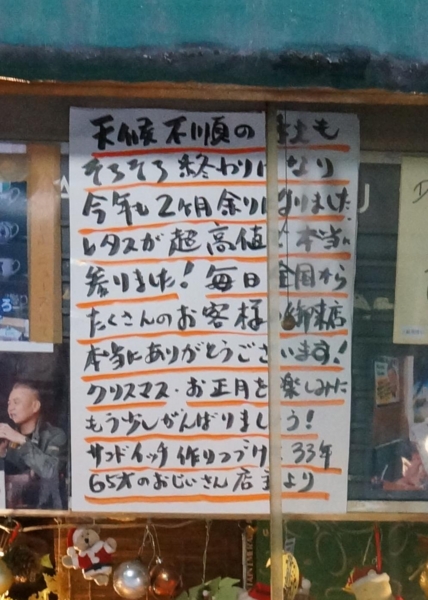 天候不順の も
そろそろ終わりになり
今年も2ヶ月余りになりました
レタスが超高値! 本当に
参りました! 毎日全国から
たくさんのお客様 御来店
本当にありがとうございます!
クリスマス・お正月を楽しみに
もう少しがんばりましょう!
サンドイッチ作りつづけ 33年
65才のおじいさん店主より